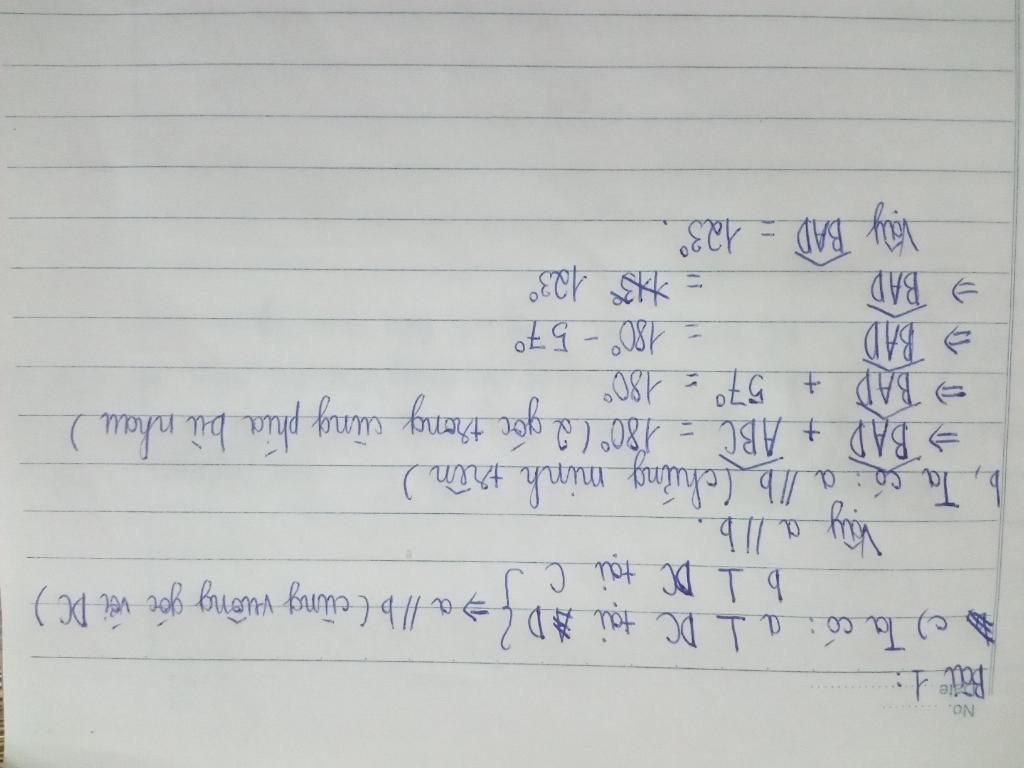 No. ..........
Date ..................
Bài 1:
c) Ta có: a ⊥ DC tại D } ⇒ a // b (cùng vuông góc với DC)
b ⊥ DC tại C
Vậy a // b.
b, Ta có: a // b (chứng minh trên)
⇒ BAD + ABC = 180° (2 góc trong cùng phía bù nhau)
⇒ BAD + 57° = 180°
⇒ BAD = 180° - 57°
⇒ BAD = 123°
Vậy BAD = 123°.